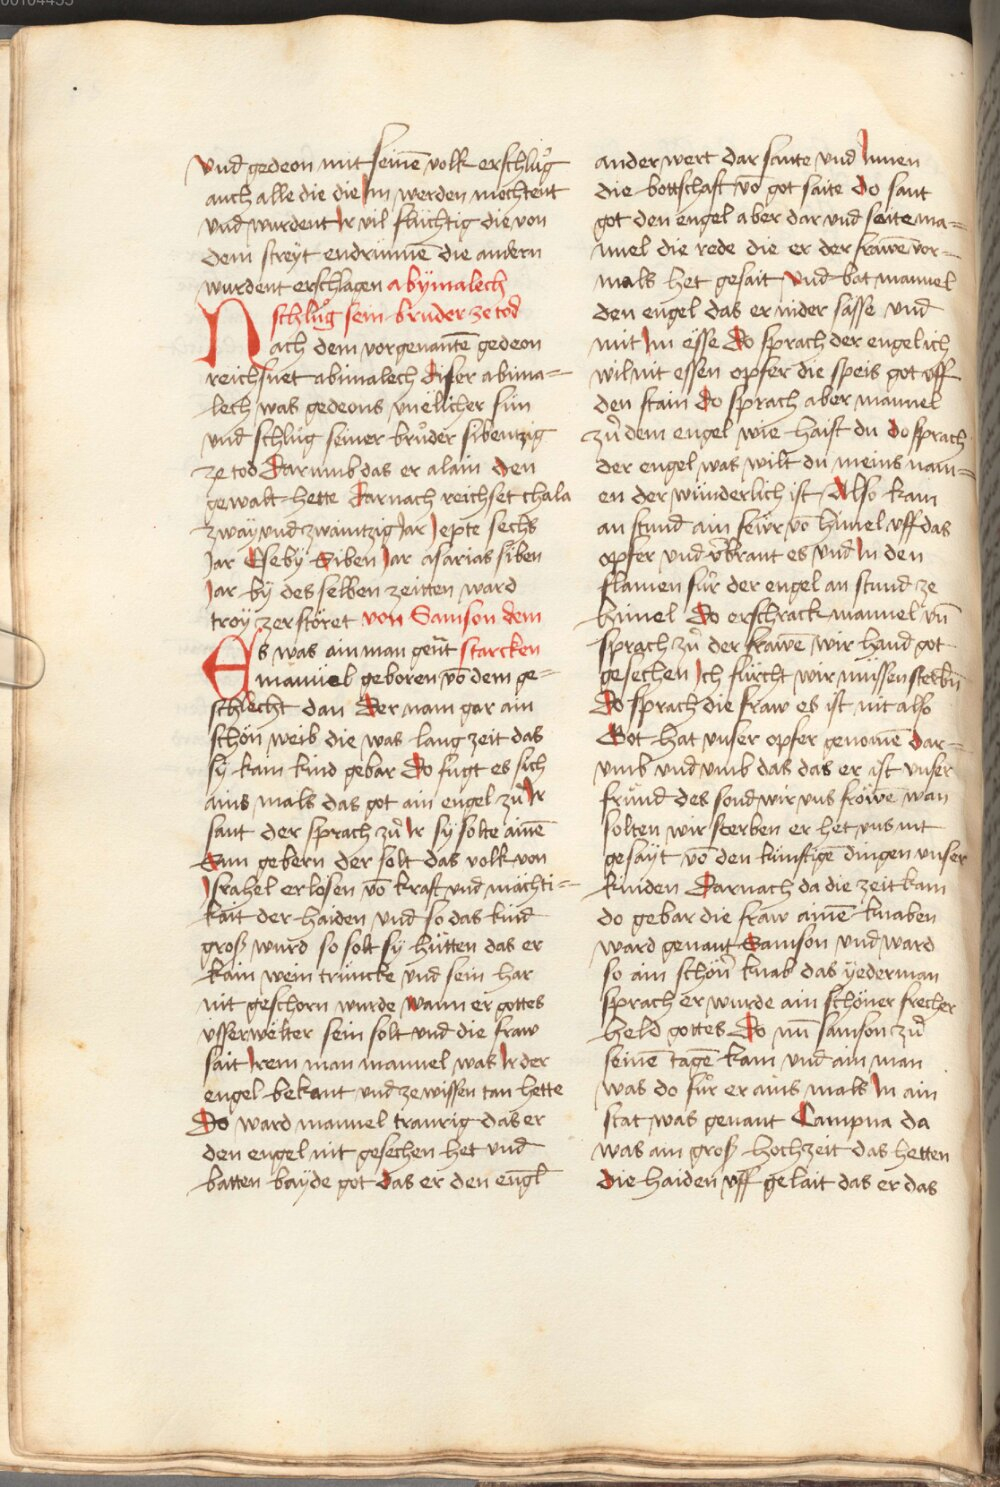 und gedeon mit seinē volk erschlůg
auch alle die die Im werden mochtent
und wurdent Ir vil flüchtig die von
dem streÿt endrinnē die andern
wurdent erschlagen abÿmalech
schlůg sein bruder ze tod
Nach dem vorgenantē gedeon
reichsnet abimalech diser abima=
lech was gedeons unelicher sün
und schlůg seiner brůder sibentzig
ze tod Darumb das er alain den
gewalt hette Darnach reichset thala
zwaÿ und zwaintzig Jar Jepte sechs
Jar Esebÿ Siben Jar asarias siben
Jar bÿ des selben zeitten ward
troÿ zerstöret von Samson dem
Es was ain man gent̄ starcken
manuel geboren vō dem ge=
schlecht dan Der nam gar ain
schön weib die was lang zeit das
sÿ kain kind gebar Do fugt es sich
ains mals das got ain engel zů Ir
sant der sprach zů Ir sÿ solte ainē
Sun gebern der solt das volk von
Israhel erlösen vō kraft und mächti=
kait der haiden und so das kind
groß wurd so solt sÿ hütten das er
kain wein trüncke und sein har
nit geschorn wurde wann er gottes
usserwelter sein solt und die fraw
sait Irem man manuel was Ir der
engel bekant und ze wissen tan hette
Do ward manuel traurig das er
den engel nit gesechen het und
batten baÿde got das er den engl
ander wert dar sante und Innen
die bottschaft vō got saite do sant
got den engel aber dar und seite ma=
nuel die rede die er der frawē vor=
mals het gesait Und bat manuel
den engel das er nider sasse und
mit Im esse Do sprach der engel ich
wil nit essen opfer die speis got uff
den stain Do sprach aber manuel
zů dem engel wie haist du do sprach
der engel was wilt du meins nam=
en der wünderlich ist Also kam
an stund ain feẅr vō himel uff das
opfer und v̄brant es und In den
flamen für der engel an stund ze
himel Do erschrack manuel uñ
sprach zů der frawē wir hand got
gesechen Ich fürcht wir müssen sterbn̄
Do sprach die fraw es ist nit also
Got hat unser opfer genomē dar=
umb und umb das das er ist unser
fründ des sond wir uns fröwē wan
solten wir sterben er het uns nit
gesaÿt vō den künftigē dingen unser
kinden Darnach da die zeit kam
do gebar die fraw ainē knaben
ward genant Samson und ward
so ain schön knab das ÿederman
sprach er wurde ain schöner frecher
held gottes Do nū samson zů
seinē tagē kam und ain man
was do fůr er ains mals In ain
stat was genant Campna da
was ain groß hochzeit das hetten
die haiden uff gelait das er das